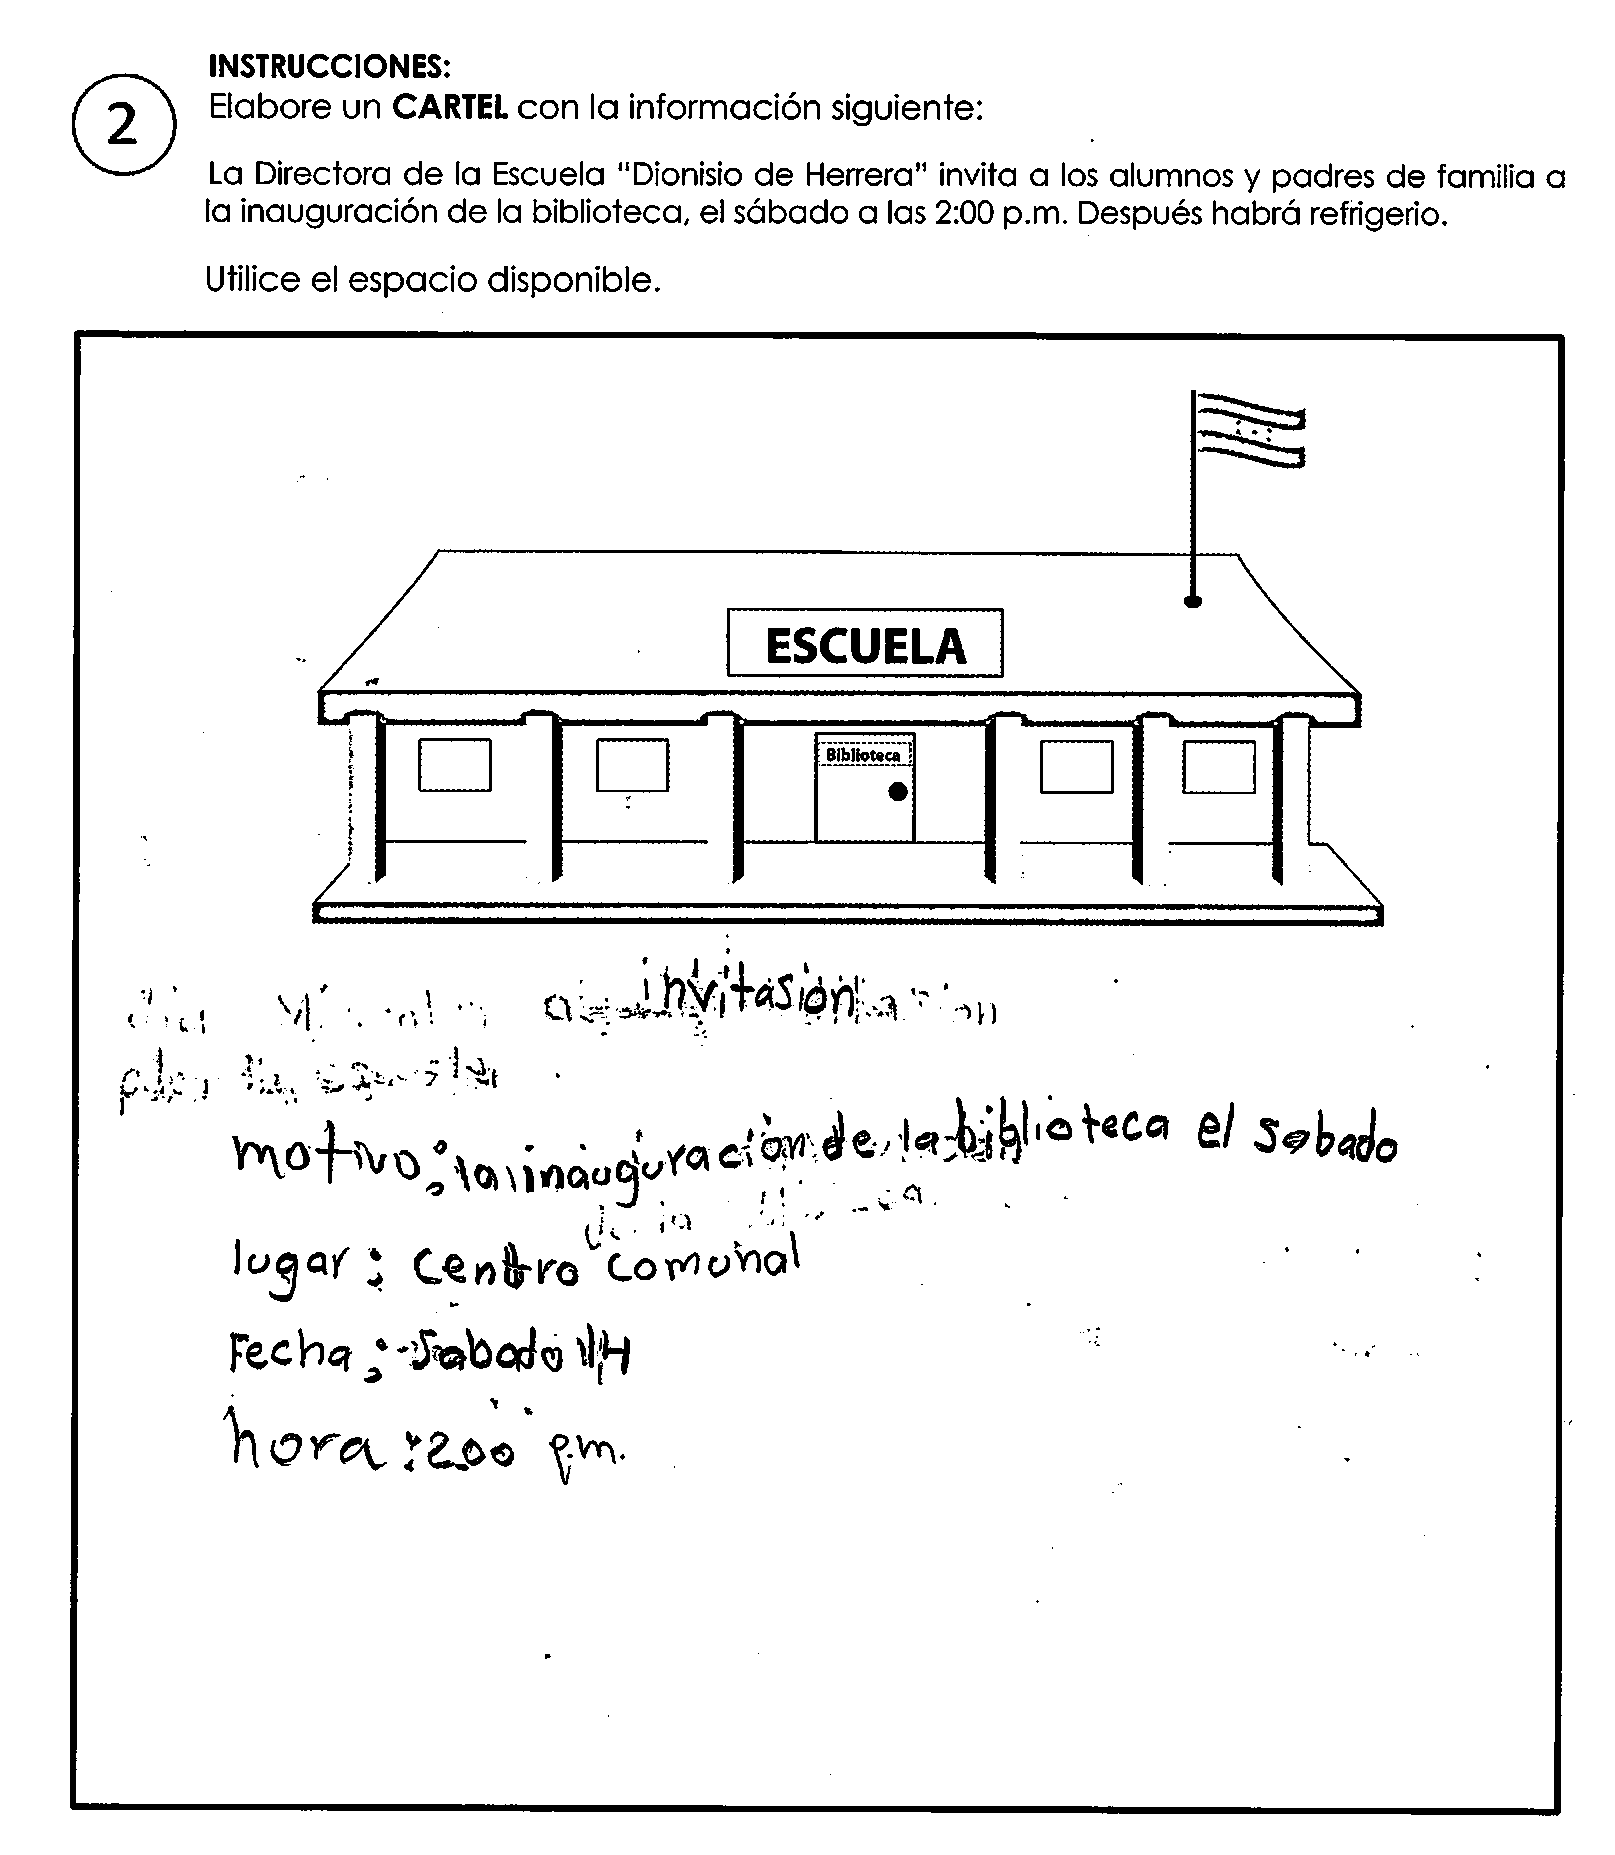 INSTRUCCIONES:
2
Elabore un CARTEL con la información siguiente:
La Directora de la Escuela "Dionisio de Herrera" invita a los alumnos y padres de familia a
la inauguración de la biblioteca, el sábado a las 2:00 p.m. Después habrá refrigerio.
Utilice el espacio disponible.
ESCUELA
Biblioteca
invitasión
motivo: la inauguración de la biblioteca el sabado
lugar: Centro comunal
Fecha: Sabado
hora: 2.00 p.m.